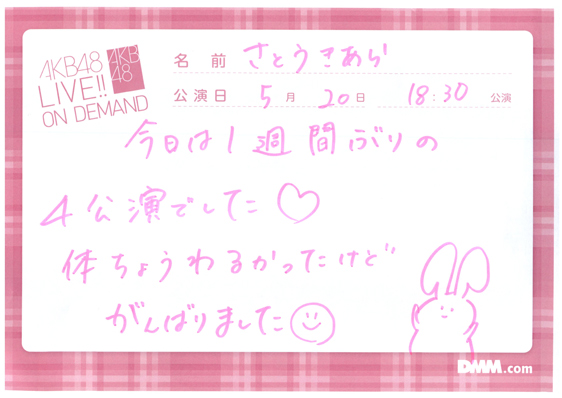 AKB48
LIVE!!
ON DEMAND
AKB
48
名前 さとうきあら
公演日 5月20日 18:30 公演
今日は1週間ぶりの
4公演でした♡
体ちょうわるかったけど
がんばりました☺
DMM.com